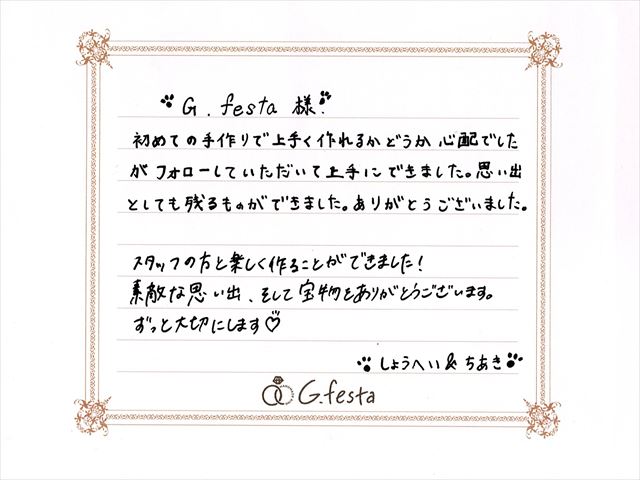 G. festa 様
初めての手作りで上手く作れるかどうか心配でした
がフォローしていただいて上手にできました。思い出
としても残るものができました。ありがとうございました。
スタッフの方と楽しく作ることができました！
素敵な思い出、そして宝物をありがとうございます。
ずっと大切にします♡
しょうへい & ちあき
G.festa